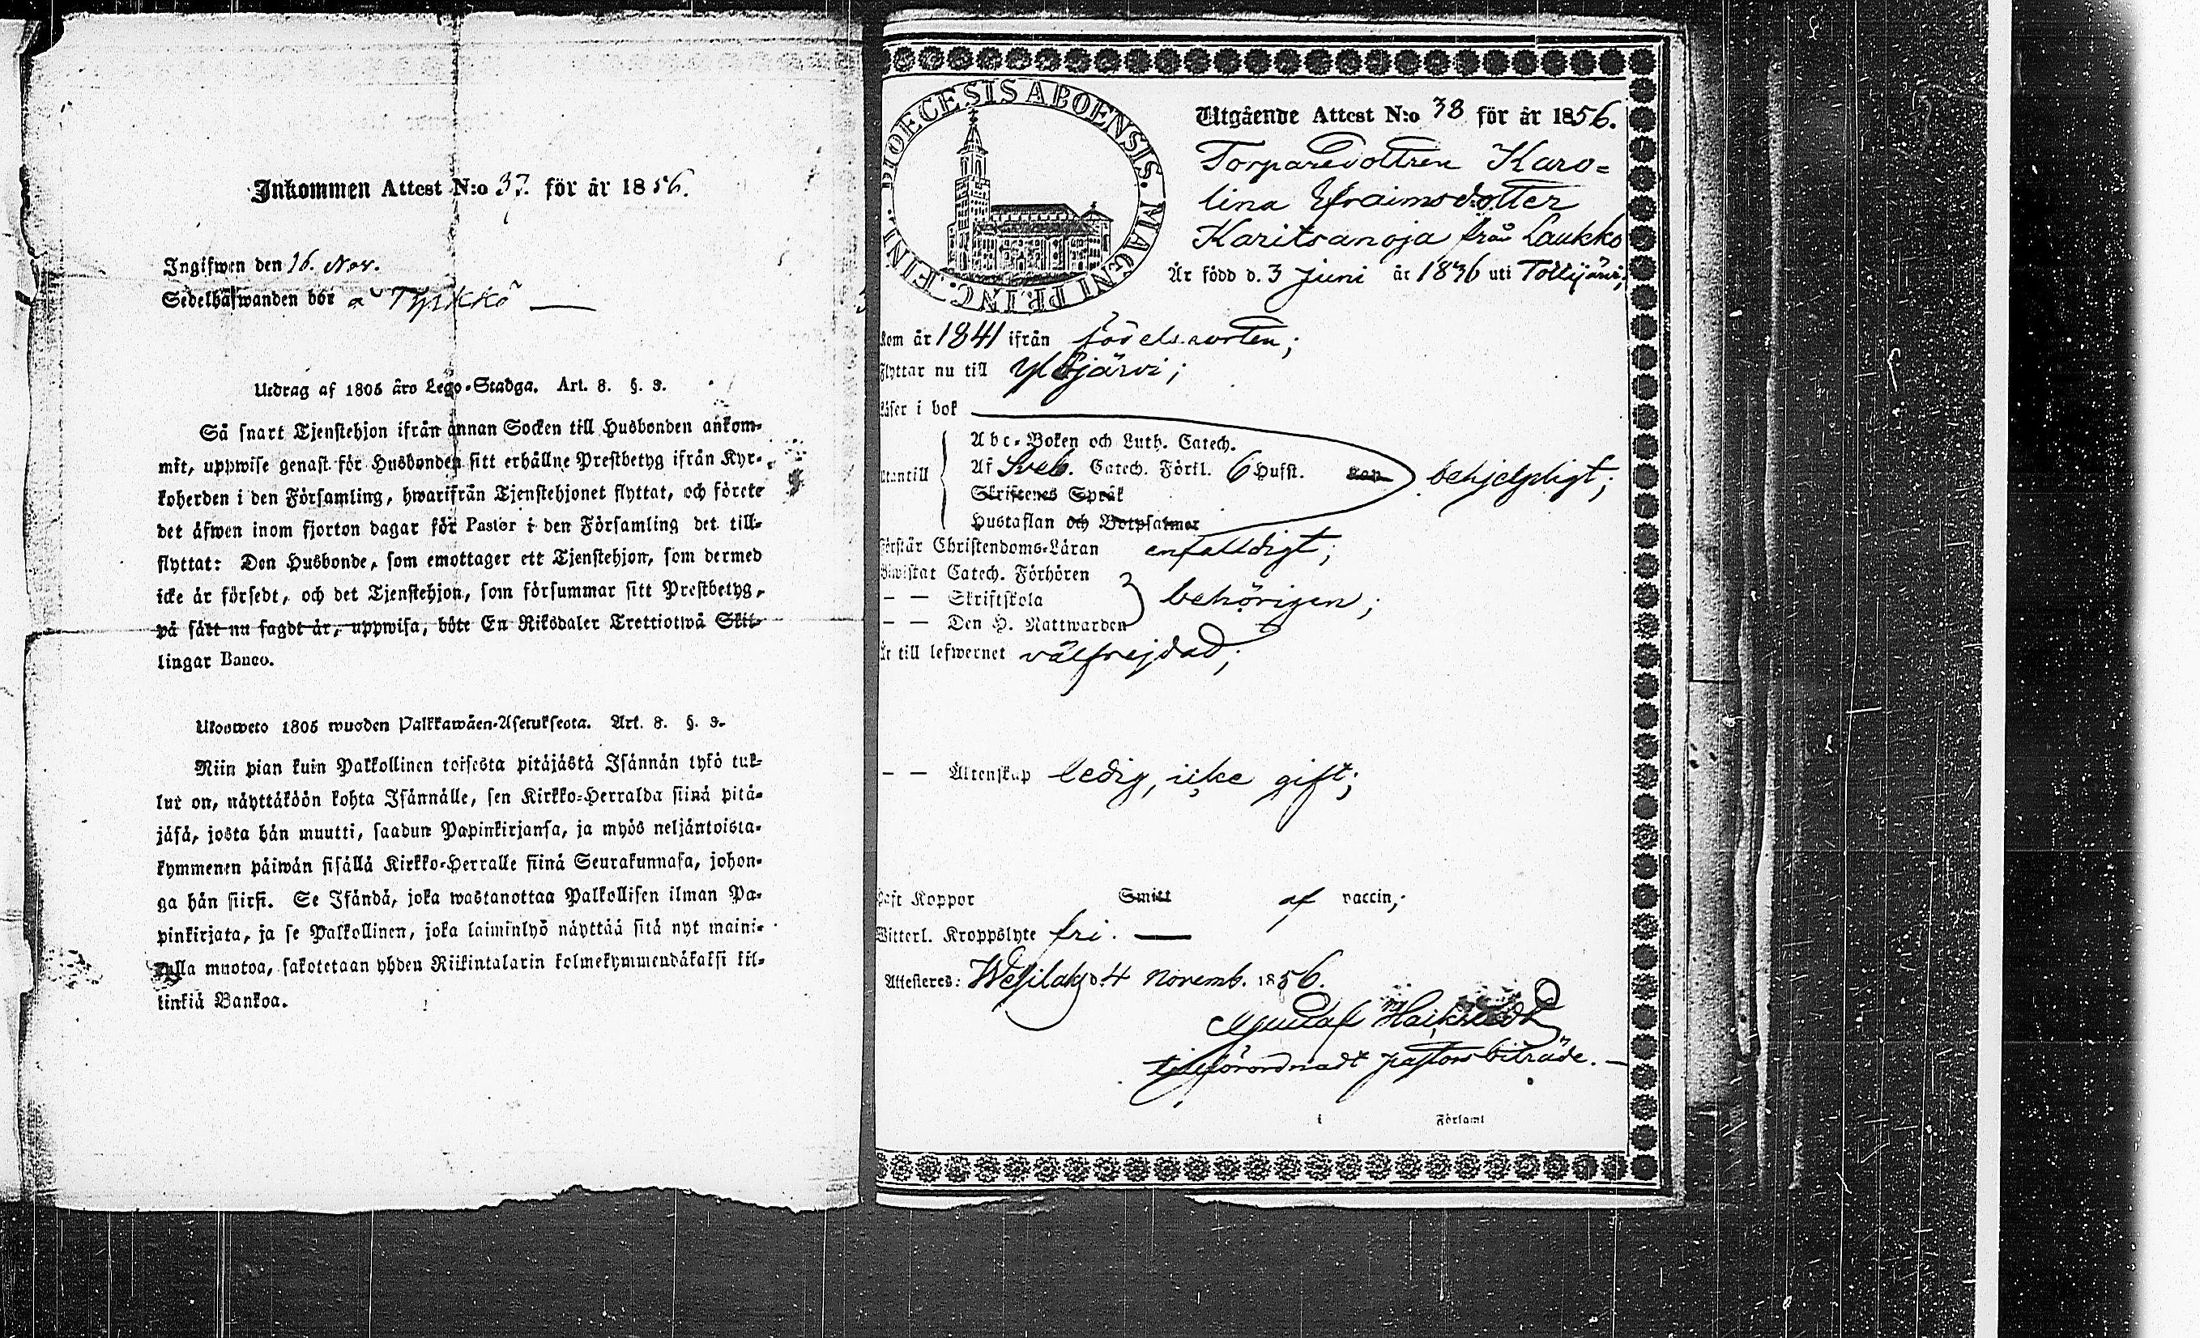 Inkommen Attest N:o 37. för år 1856.
Ingifwen den 16. Nov.
Sedelhafwanden bor å Tyrkkö
Utdrag af 1805 års Lego-Stadga. Art. 8. §. 3.
Så snart Tjenstehjon ifrån annan Socken till Husbonden ankom-
mit, uppwise genast för Husbonden sitt erhållne Prestbetyg ifrån Kyr-
koherden i den Församling, hwarifrån Tjenstehjonet flyttat, och förete
det äfwen inom fjorton dagar för Pastor i den Församling det till-
flyttat: Den Husbonde, som emottager ett Tjenstehjon, som dermed
icke är försedt, och det Tjenstehjon, som försummar sitt Prestbetyg,
på sätt nu sagdt är, uppwisa, böte En Riksdaler Trettiotwå Skil-
lingar Banco.
Uloosweto 1805 wuoden Palkkawäen-Asetuksesta. Art. 8. §. 3.
Niin pian kuin Palkollinen toisesta pitäjästä Isännän tykö tul-
lut on, näyttäköön kohta Isännälle, sen Kirkko-Herralda siinä pitä-
jäsä, josta hän muutti, saadun Papinkirjansa, ja myös neljäntoista-
kymmenen päiwän sisällä Kirkko-Herralle siinä Seurakunnasa, johon-
ga hän siirsi. Se Isändä, joka wastanottaa Palkollisen ilman Pa-
pinkirjata, ja se Palkollinen, joka laiminlyö näyttää sitä nyt maini-
tulla muotoa, sakotetaan yhden Riikintalarin kolmekymmendäkaksi kil-
linkiä Bankoa.
DIOECESIS ABOENSIS. MAGNI PRINC. FINL.
Utgående Attest N:o 38 för år 1856.
Torparedottren Karo-
lina Efraimsdotter
Karitsanoja från Laukko
Är född d. 3 Juni år 1836 uti Tottijärvi;
kom år 1841 ifrån födelseorten;
flyttar nu till Ylöjärvi;
Läser i bok
Abc-Boken och Luth. Catech.
Utantill Af Sveb. Catech. Förkl. 6 Hufst. behjelpligt;
Skriftenes Språk
Hustaflan och Botpsalmer
Förstår Christendoms-Läran enfaldigt;
Biwistat Catech. Förhören
— — Skriftskola behörigen;
— — Den H. Nattwarden
Är till lefwernet välfrejdad;
— — Äktenskap ledig, icke gift;
Haft Koppor Smitt af vaccin;
Witterl. Kroppslyte fri.
Attesteras: Wesilaks d. 4 Novemb. 1856.
Gustaf
tillförordnadt pastorsbiträde.
i Församl